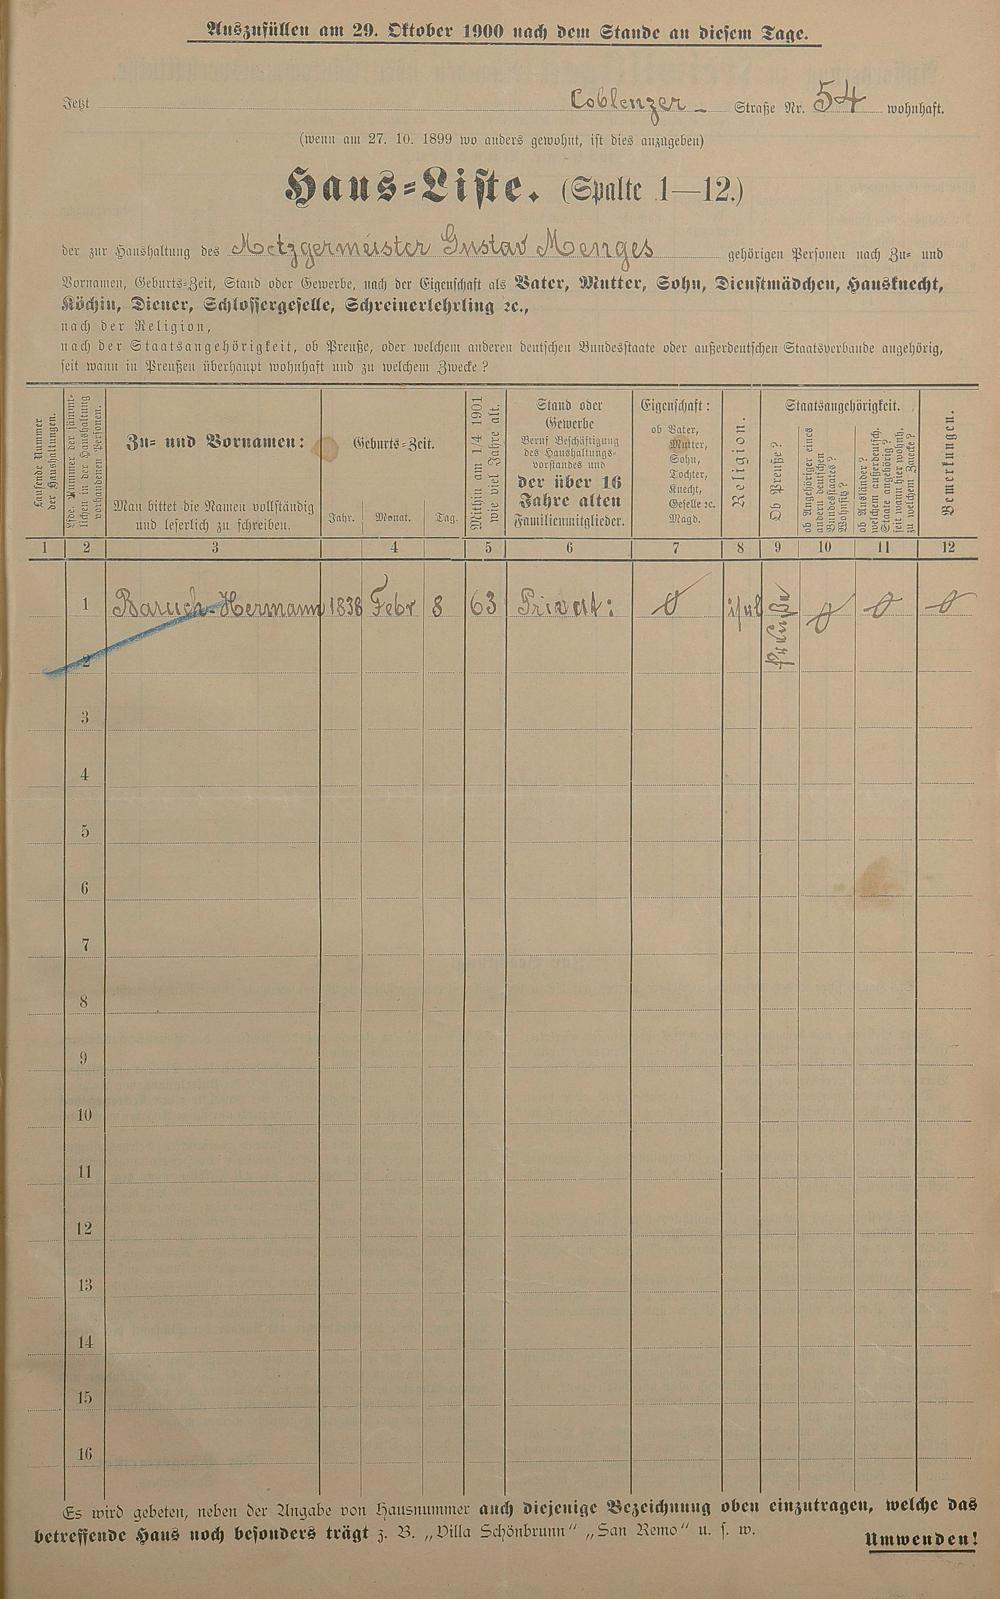 Auszufüllen am 29. Oktober 1900 nach dem Stande an diesem Tage.
Jetzt Coblenzer - Straße Nr. 54 wohnhaft.
(wenn am 27. 10. 1899 wo anders gewohnt, ist dies anzugeben)
Haus-Liste. (Spalte 1—12.)
der zur Haushaltung des Metzgermeister Gustav Menges gehörigen Personen nach Zu- und
Vornamen, Geburts-Zeit, Stand oder Gewerbe, nach der Eigenschaft als Vater, Mutter, Sohn, Dienstmädchen, Hausknecht,
Köchin, Diener, Schlossergeselle, Schreinerlehrling ꝛc.,
nach der Religion,
nach der Staatsangehörigkeit, ob Preuße, oder welchem anderen deutschen Bundesstaate oder außerdeutschen Staatsverbande angehörig,
seit wann in Preußen überhaupt wohnhaft und zu welchem Zwecke?
Laufende Nummer
der Haushaltungen.
lfde. Nummer der sämmt-
lichen in der Haushaltung
vorhandenen Personen.
Zu- und Vornamen:
Man bittet die Namen vollständig
und leserlich zu schreiben.
Geburts-Zeit.
Jahr. Monat. Tag.
Mithin am 1/4 1901
wie viel Jahre alt.
Stand oder
Gewerbe
Beruf Beschäftigung
des Haushaltungs-
vorstandes und
der über 16
Jahre alten
Familienmitglieder.
Eigenschaft:
ob Vater,
Mutter,
Sohn,
Tochter,
Knecht,
Geselle ꝛc.
Magd.
Religion.
Staatsangehörigkeit.
Ob Preuße?
ob Angehöriger eines
andern deutschen
Bundesstaates?
Wohnsitz?
ob Ausländer?
welchem außerdeutsch.
Staate angehörig?
seit wann hier wohnh.
zu welchem Zwecke?
Bemerkungen.
1 2 3 4 5 6 7 8 9 10 11 12
1 Baruch-Hermann 1838 Febr 8 63 Privat: isrl Preuße
2
3
4
5
6
7
8
9
10
11
12
13
14
15
16
Es wird gebeten, neben der Angabe von Hausnummer auch diejenige Bezeichnung oben einzutragen, welche das
betreffende Haus noch besonders trägt z. B. „Villa Schönbrunn" „San Remo" u. s. w.
Umwenden!